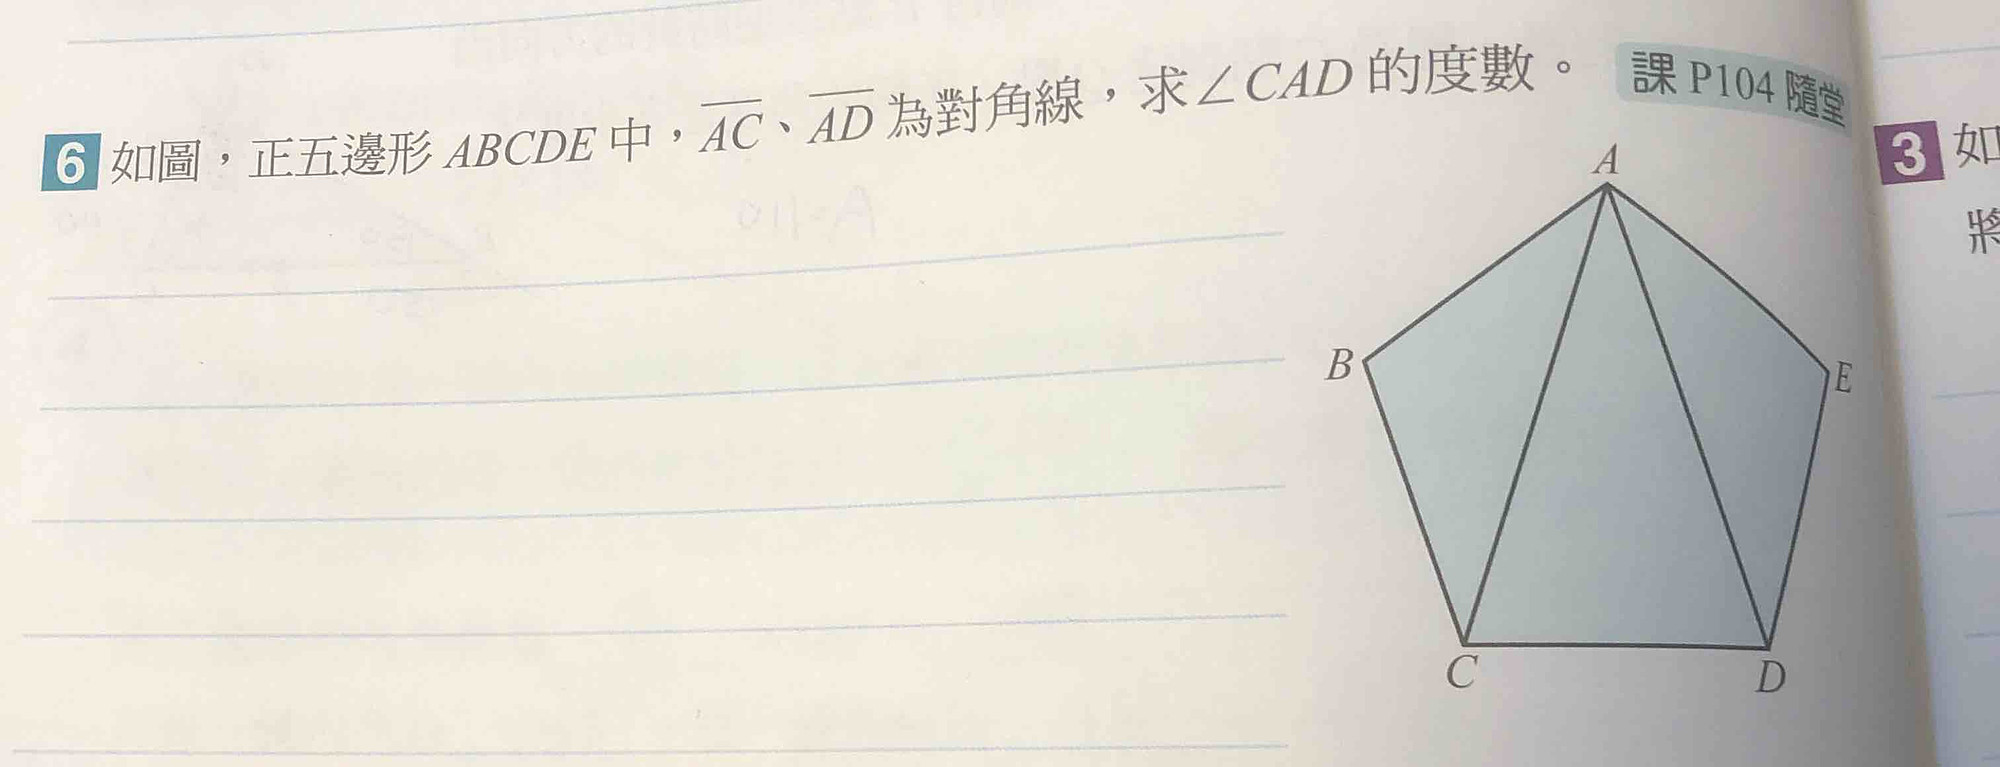 6 如圖，正五邊形 ABCDE 中，AC、AD 為對角線，求∠CAD 的度數。 課 P104 隨堂
A
B
E
C
D
3 如
將